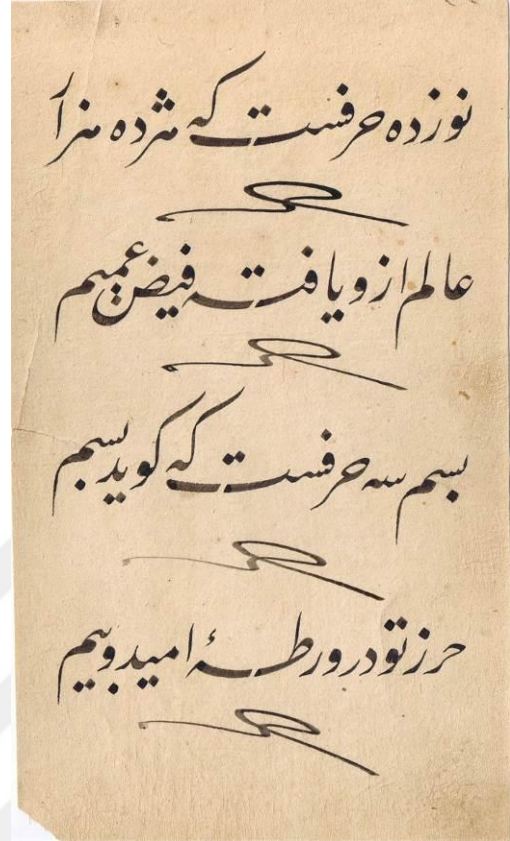 نوزده حرفست که هژده هزار
عالم ازو یافت فیض عمیم
بسم سه حرفست که کوید بسم
حرز تو در ورطهٔ امید و بیم